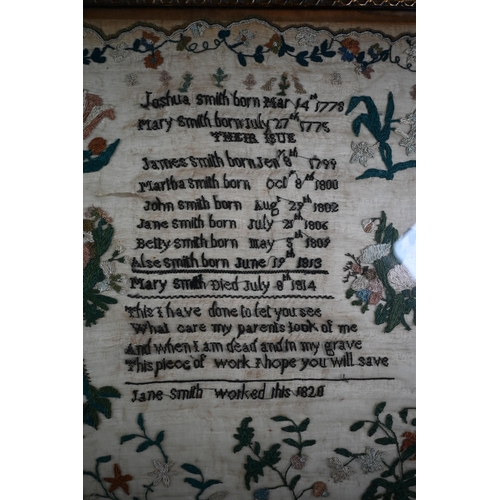 Joshua Smith born Mar 14th 1778
Mary Smith born July 27th 1775
THEIR ISUE
James Smith born Jen 8th 1799
Martha Smith born Oct 8th 1800
John Smith born Augt 29th 1802
Jane Smith born July 21th 1806
Betty Smith born may 5th 1809
Alse Smith born June 19th 1813
Mary Smith Died July 8th 1814
This I have done to let you see
What care my parents took of me
And when I am dead and in my grave
This piece of work I hope you will save
Jane Smith worked this 1828